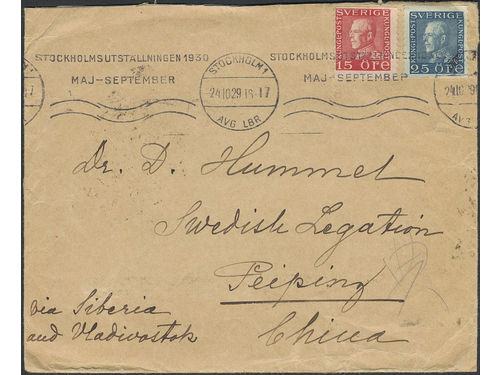 SVERIGE
KUNGL POST
15 ÖRE
SVERIGE
KUNGL POST
25 ÖRE
STOCKHOLMSUTSTÄLLNINGEN 1930
MAJ-SEPTEMBER
STOCKHOLM 1
24.10.29.16-17
AVG LBR
STOCKHOLMSUTSTÄLLNINGEN
MAJ-SEPTEMBER
24.10.29
AVG
Dr. D. Hummel
Swedish Legation
Peiping
China
via Siberia
and Vladivostok